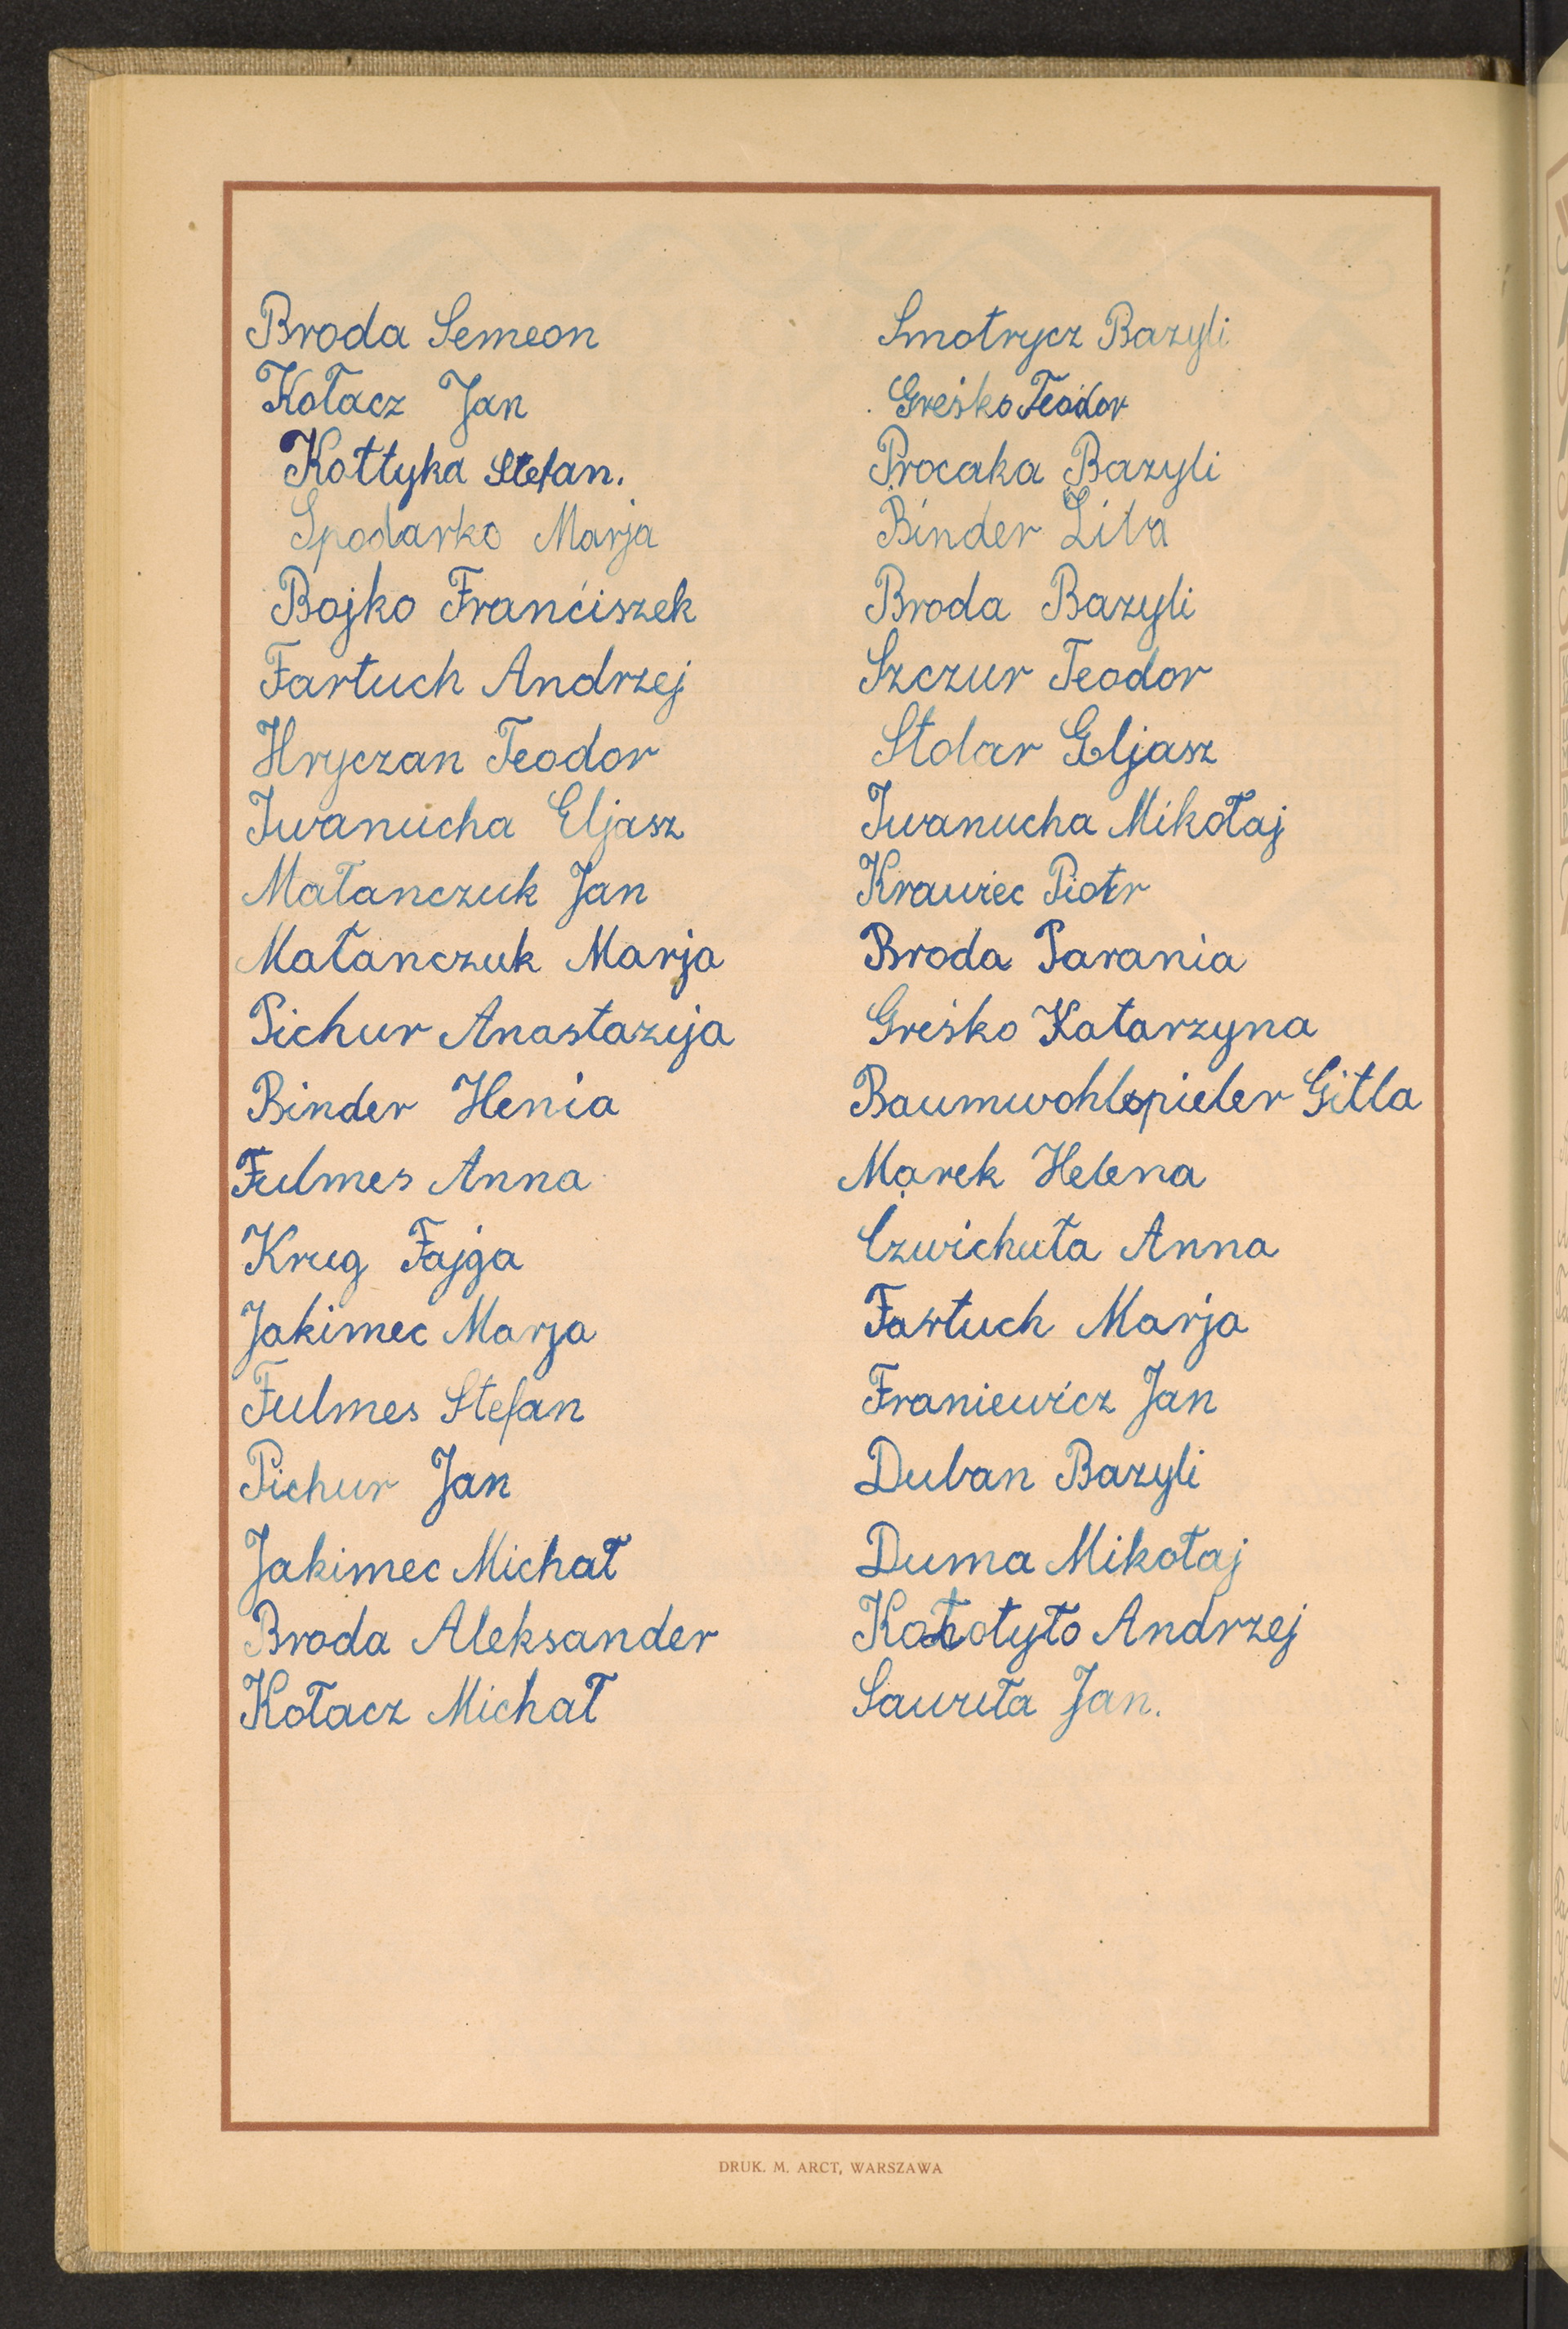 Broda Semeon
Kołacz Jan
Kottyka Stefan.
Spodarko Marja
Bojko Franciszek
Fartuch Andrzej
Hryczan Teodor
Iwanucha Eljasz
Małanczuk Jan
Małanczuk Marja
Pichur Anastazja
Binder Henia
Fulmes Anna
Krug Fajga
Jakimec Marja
Fulmes Stefan
Pichur Jan
Jakimec Michał
Broda Aleksander
Kołacz Michał
Smotrycz Bazyli
Greśko Teodor
Procaka Bazyli
Binder
Broda Bazyli
Szczur Teodor
Stolar Eljasz
Iwanucha Mikołaj
Krawiec Piotr
Broda Parania
Greśko Katarzyna
Baumwohlspieler Gitla
Marek Helena
Czwichuła Anna
Fartuch Marja
Franiewicz Jan
Duban Bazyli
Duma Mikołaj
Andrzej
Sawuła Jan.
DRUK. M. ARCT, WARSZAWA